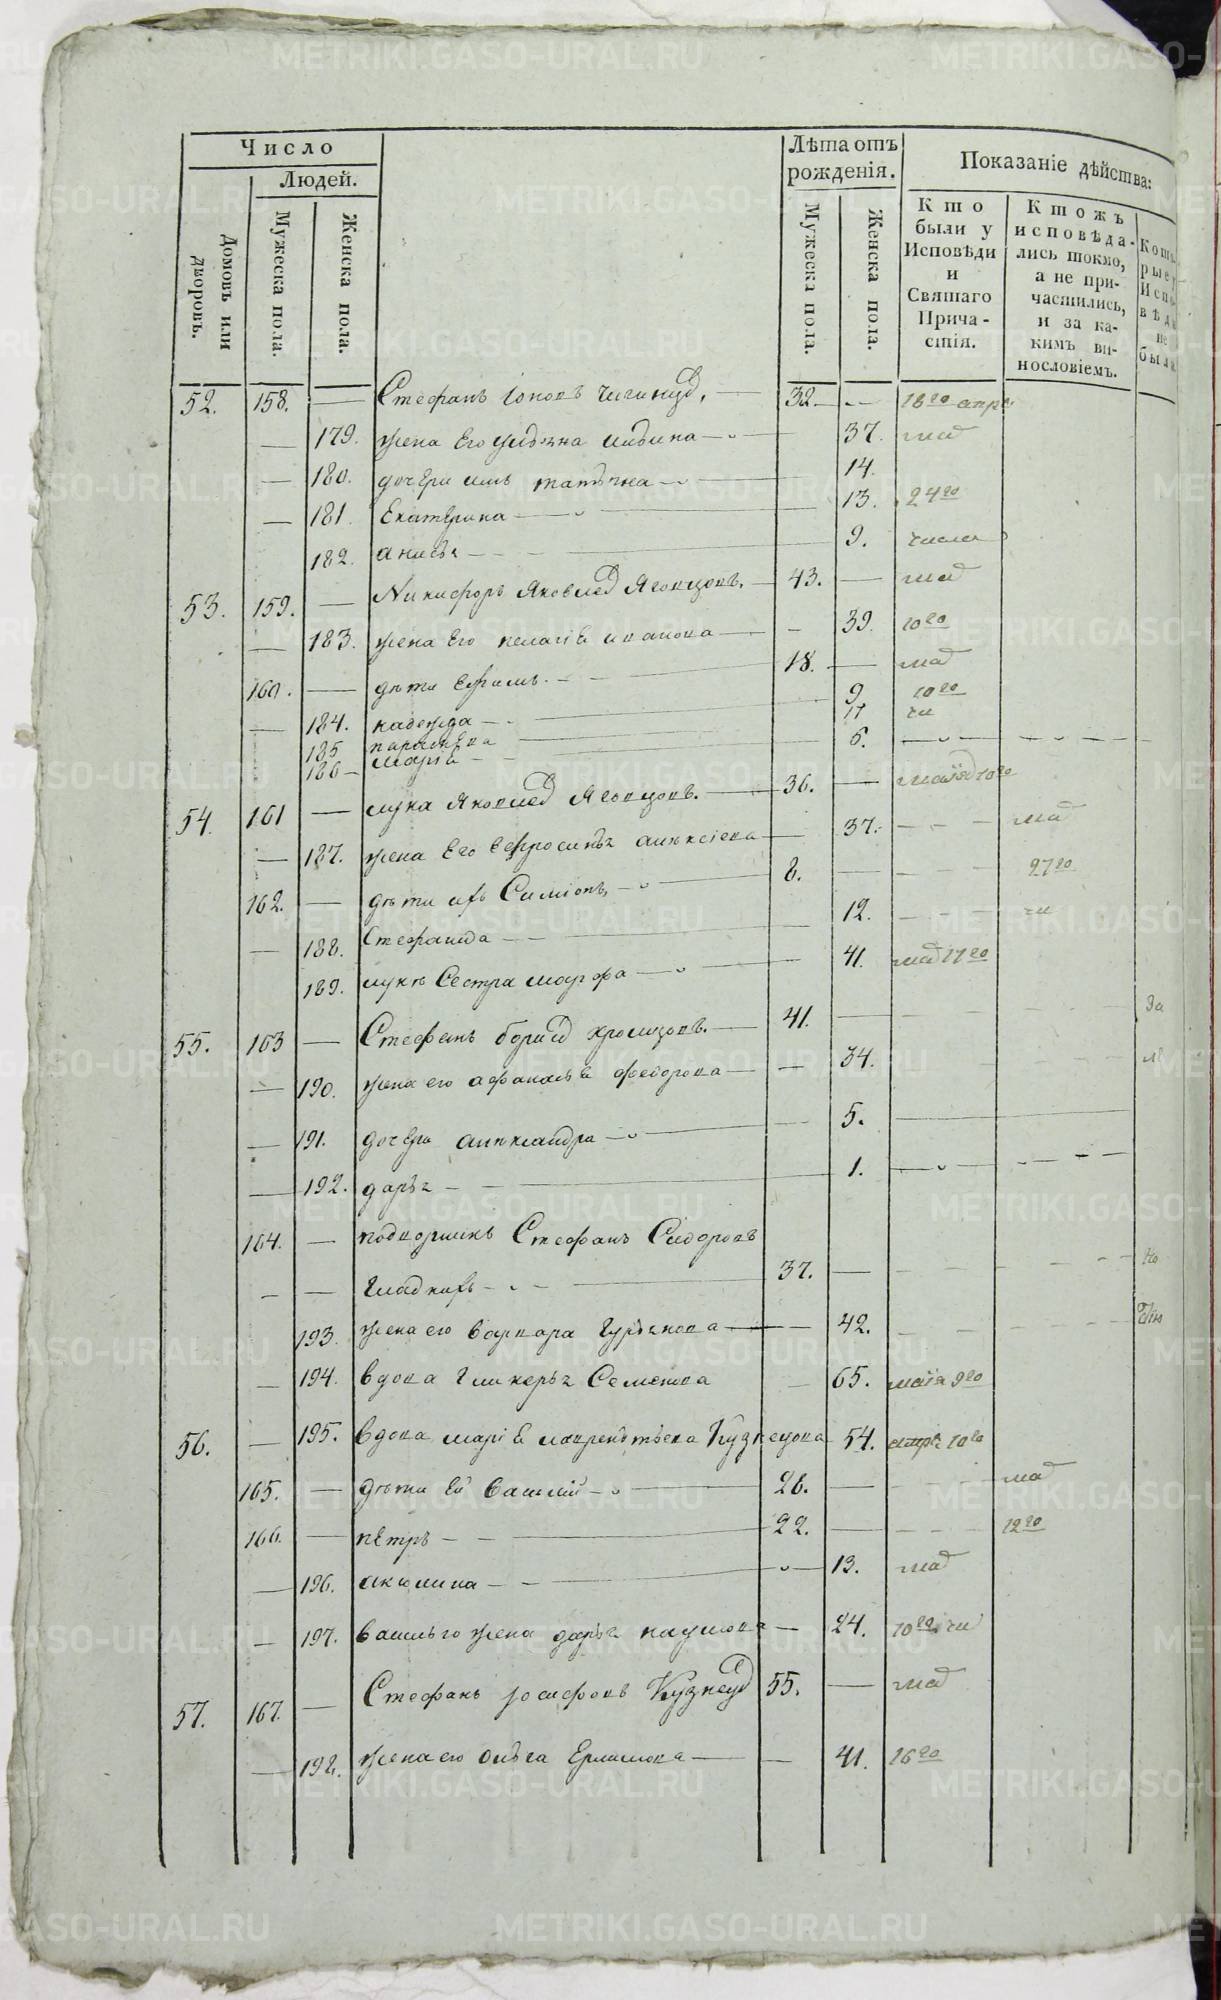 Число
Людей.
Домовъ или дворовъ.
Мужеска пола.
Женска пола.
Лѣта отъ рожденія.
Мужеска пола.
Женска пола.
Показаніе дѣйства:
Кто были у Исповѣди и Святаго Причастія.
Ктожъ исповѣдались токмо, а не причастились, и за какимъ винословіемъ.
Которые у Исповѣди не были
52. 158. — Стефанъ Іоновъ 32. 18го апре
— 179. жена его 37. маія
— 180. дочери ихъ татьяна 14.
— 181. Екатерина 13. 24го
182. анисья 9. числа
53. 159. — Никифоръ Яковлевъ 43. — маія
— 183. жена его пелагія иванова 39. 10го
160. — дѣти Ефимъ 18. — маія
— 184. надежда 9 10го
185 параскева 17 чи
186 марія 6.
54. 161 — лука Яковлевъ 36. — маія 10го
— 187. жена его Ефросинья алексіева 37. маія
162. — дѣти ихъ Симіонъ 8. — 27го
— 188. Стефанида 12. чи
189. луки Сестра марфа 41. маія 17го
55. 163 — Стефанъ борисовъ 41. — За
— 190. жена его афанасья федорова 34.
— 191. дочери александра 5.
— 192. дарья 1.
164. — Стефанъ Сидоровъ
— — гладкихъ 37. —
193. жена его варвара гурьянова 42.
— 194. вдова гликерья Семенова 65. маія 9го
56. — 195. вдова марія лаврентьева Кузнецова 54. апре 10го
165. — дѣти ея василій 26. — маія
166. — петръ 22. — 12го
— 196. акилина 13. маія
— 197. васильго жена дарья наумова 24. 10го чи
57. 167. — Стефанъ Іосифовъ Кузнецовъ 55. — маія
— 198. жена его ольга Ермилова 41. 16го
METRIKI.GASO-URAL.RU